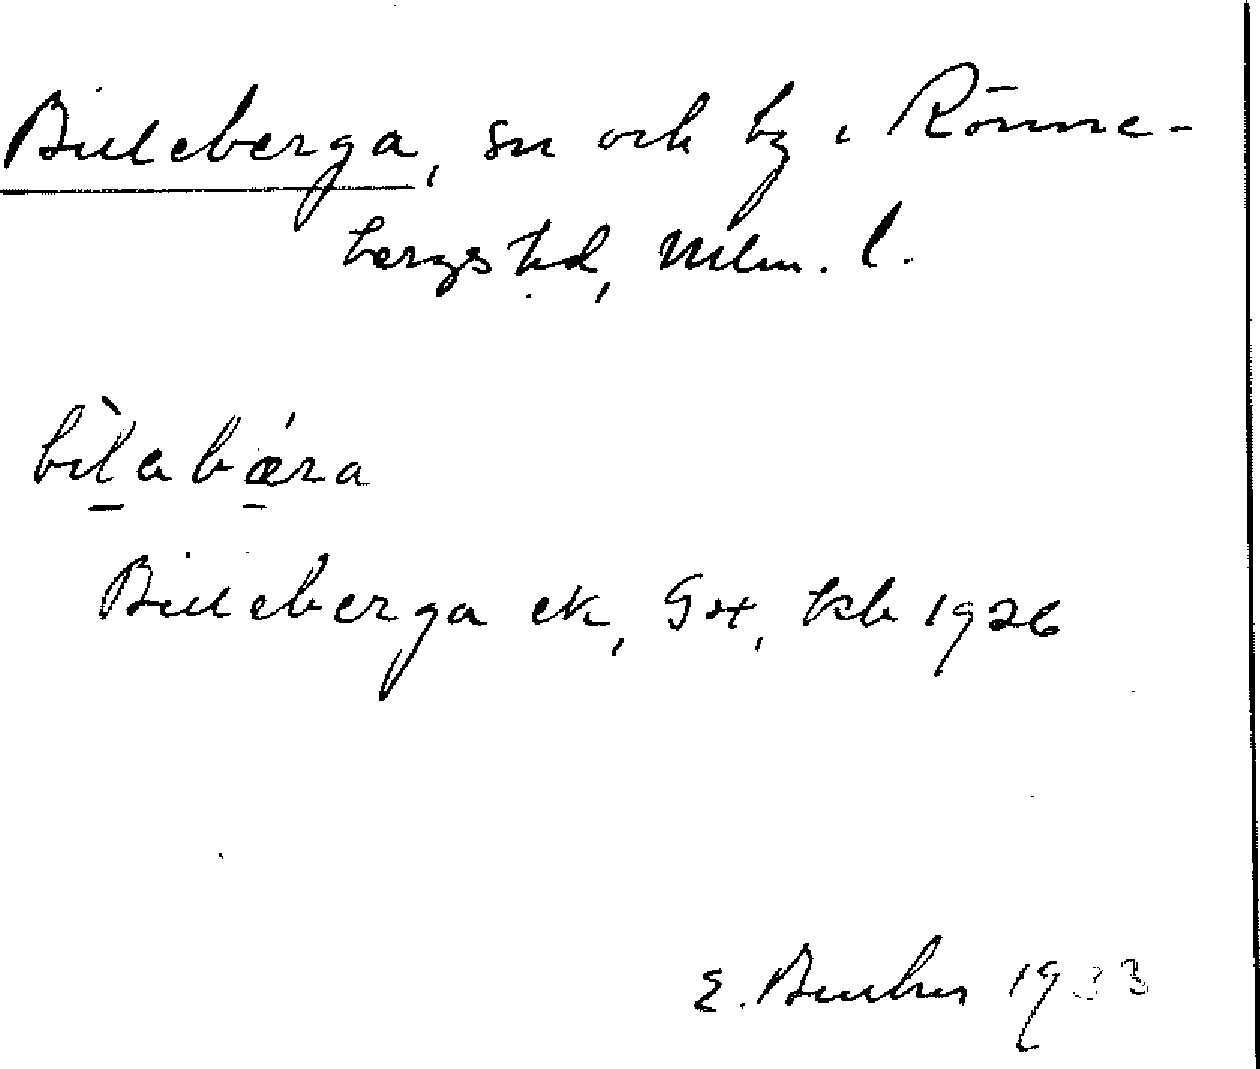 Billeberga, sn och by i Rönne-
bergs hd, Mlm. l.
bìlabǽra
Billeberga ek, Gst, kbl 1926
E. 1933